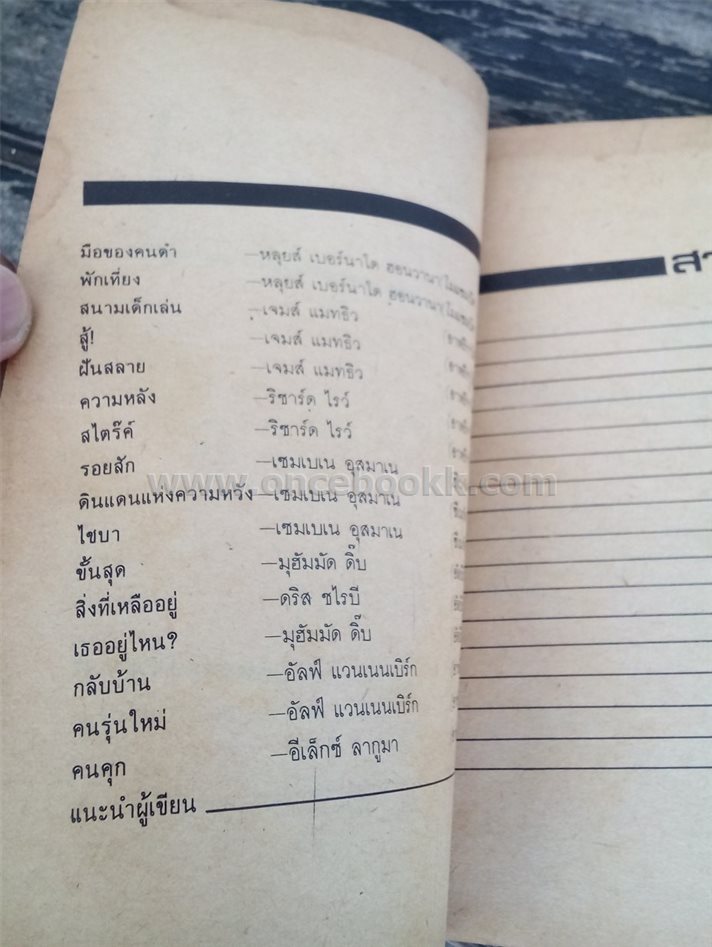 มือของคนดำ —หลุยส์ เบอร์นาโด ฮอนวานา
พักเที่ยง —หลุยส์ เบอร์นาโด ฮอนวานา
สนามเด็กเล่น —เจมส์ แมทธิว
สู้! —เจมส์ แมทธิว
ฝันสลาย —เจมส์ แมทธิว
ความหลัง —ริชาร์ด ไรว์
สไตร๊ค์ —ริชาร์ด ไรว์
รอยสัก —เซมเบเน อุสมาเน
ดินแดนแห่งความหวัง —เซมเบเน อุสมาเน
ไชบา —เซมเบเน อุสมาเน
ขั้นสุด —มุฮัมมัด ดิ๊บ
สิ่งที่เหลืออยู่ —ดริส ชไรบี
เธออยู่ไหน? —มุฮัมมัด ดิ๊บ
กลับบ้าน —อัลฟ์ แวนเนนเบิร์ก
คนรุ่นใหม่ —อัลฟ์ แวนเนนเบิร์ก
คนคุก —อีเล็กซ์ ลากูมา
แนะนำผู้เขียน
www.oncebookk.com